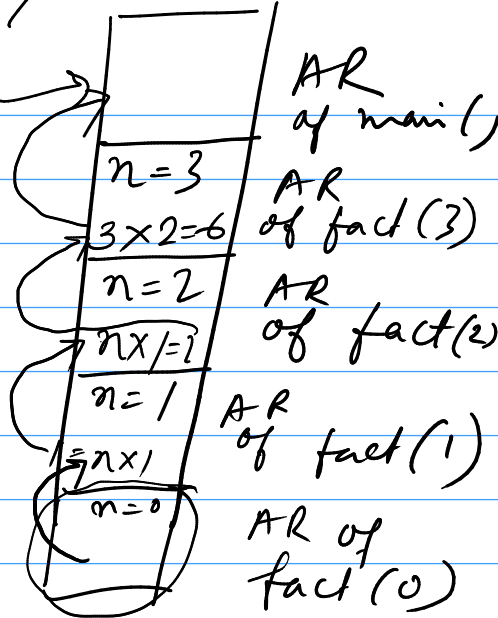 AR
of main()
n=3
AR
3×2=6
of fact(3)
n=2
AR
n×1=2
of fact(2)
n=1
AR
1=n×1
of fact(1)
n=0
AR of
fact(0)